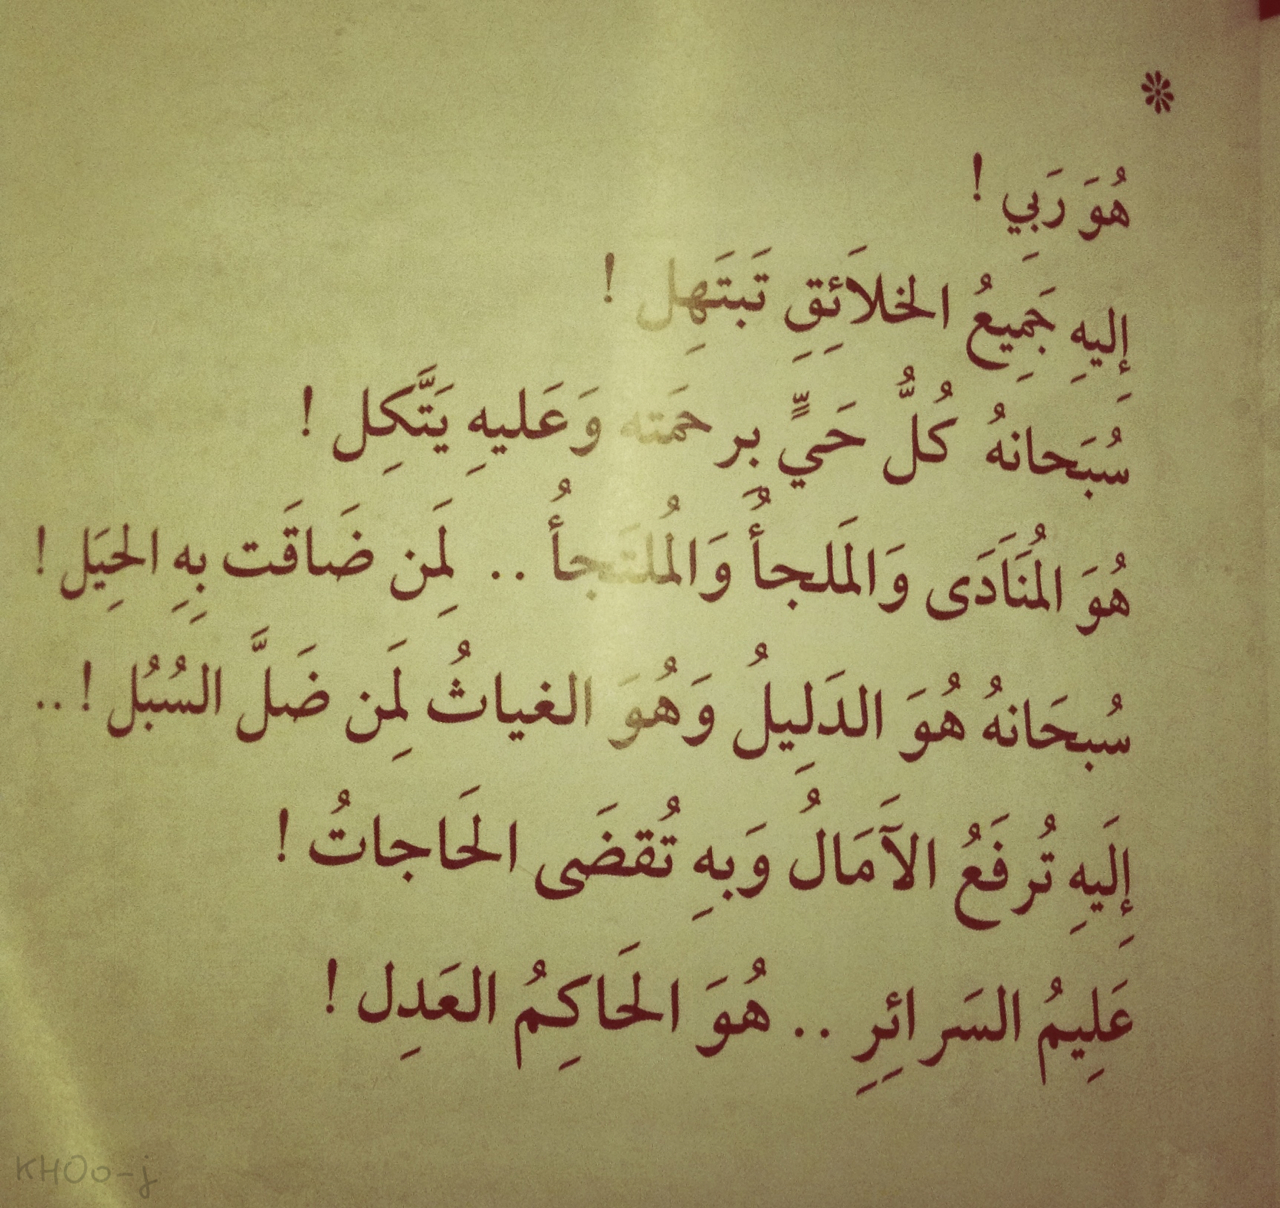 هُوَ رَبِي !
إِليهِ جَمِيعُ الخلاَئِقِ تَبتَهِل !
سُبَحانهُ كُلُّ حَيٍّ بِرحمَته وَعَليهِ يَتَّكِل !
هُوَ المُنَادَى وَالمَلجأُ وَالمُلتَجأُ .. لِمَن ضَاقَت بِهِ الحِيَل !
سُبحَانهُ هُوَ الدَلِيلُ وَهُوَ الغياثُ لِمَن ضَلَّ السُبُل ! ..
إِلَيهِ تُرفَعُ الآَمَالُ وَبِهِ تُقضَى الحَاجاتُ !
عَلِيمُ السَرائِرِ .. هُوَ الحَاكِمُ العَدِل !
KHOo-j